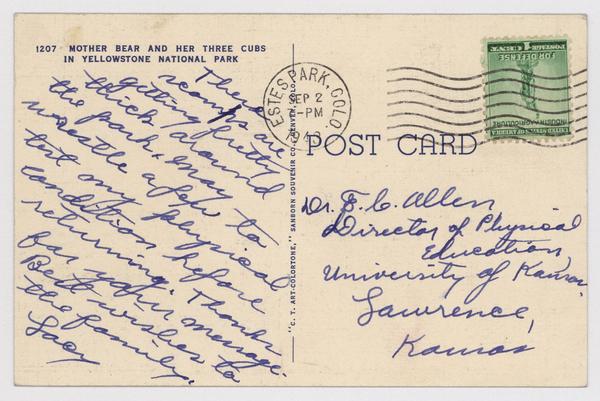 1207 MOTHER BEAR AND HER THREE CUBS
IN YELLOWSTONE NATIONAL PARK
These
scamps are
getting pretty
thick around
the park. May
wrestle a few to
test my physical
condition before
returning. Thanks
for your message.
Best wishes to
the family.
"C. T. ART-COLORTONE," SANBORN SOUVENIR CO., DENVER, COLO.
ESTES PARK, COLO.
SEP 2
-PM
POST CARD
UNITED STATES OF AMERICA
INDUSTRY-AGRICULTURE
FOR DEFENSE
POSTAGE 1 CENT
Dr. F. C. Allen
Director of Physical
Education,
University of Kansas,
Lawrence,
Kansas